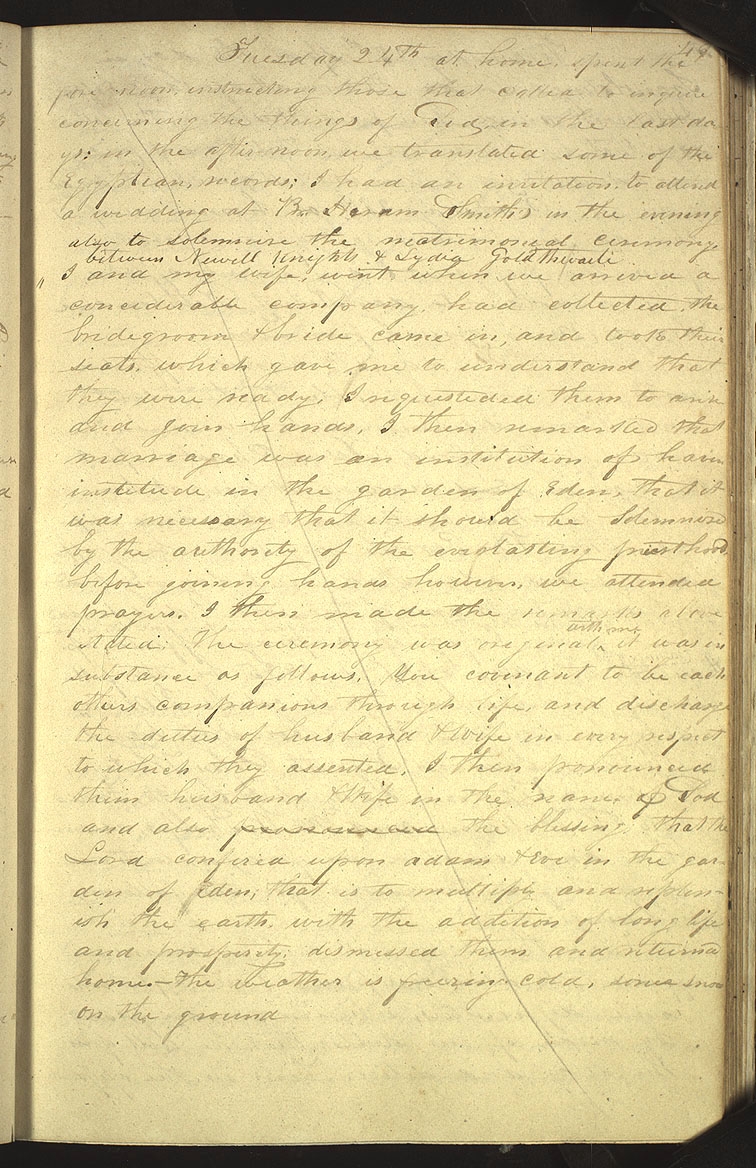 49
Tuesday 24th at home, spent the
fore noon, instructing those that called to inquire
concerning the things of God, in the last da
ys: in the after-noon, we translated some of the
Egyptian, records; I had an invitation to attend
a wedding at Br. Hiram Smith's in the evening
also to solemnize the matrimonial ceremony
between Newell Knights & Lydia Goldthwaite
I and my wife, went when we arrived a
conciderable company, had collected, the
bridegroom & bride came in, and took their
seats, which gave me to understand that
they were ready, I requesteded them to arise
and join hands, I then remarked that
marriage was an institution of
institude in the garden of Eden, that it
was necessary that it should be Solemnized
by the authority of the everlasting priesthood,
before joining hands however, we attended
prayers. I then made the remarks above
stated; The ceremony was original
with me
it was in
substance as follows, You covenant to be each
others companions through life, and discharge
the duties of husband & wife in every respect
to which they assented, I then pronounced
them husband & Wife in the name of God
and also pronounced the blessing that the
Lord confered upon adam & Eve in the gar
den of Eden; that is to multiply and replen-
ish the earth, with the addition of long life
and prosperity; dismissed them and returned
home.— The weather is freezing cold, some snow
on the ground